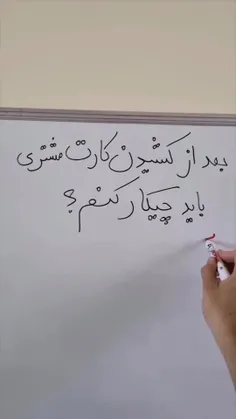 بعد از کشیدن کارت مشتری
باید چیکار کنم؟